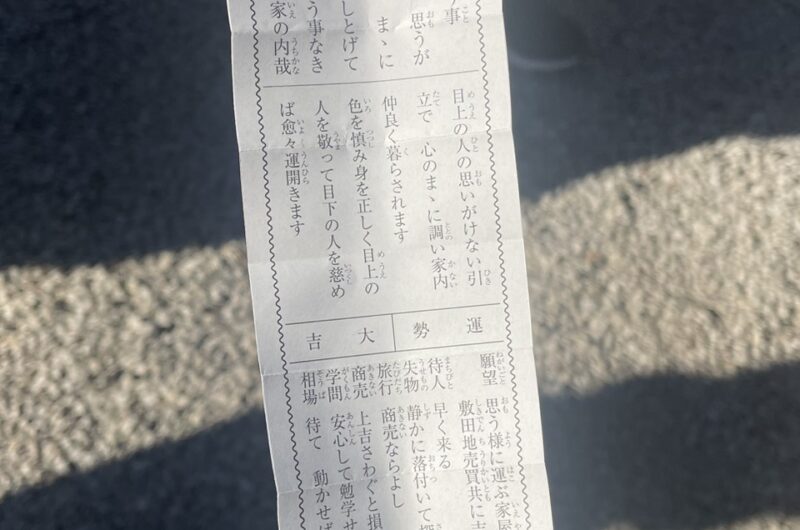 う事
思うが
まゝに
しとげて
う事なき
家の内哉
目上の人の思いがけない引
立で 心のまゝに調い家内
仲良く暮らされます
色を慎み身を正しく目上の
人を敬って目下の人を慈め
ば愈々運開きます
運勢
大吉
願望 思う様に運ぶ家屋
敷田地売買共に吉
待人 早く来る
失物 静かに落付いて
旅行 商売ならよし
商売 上吉さわぐと損
学問 安心して勉学せ
相場 待て 動かせば